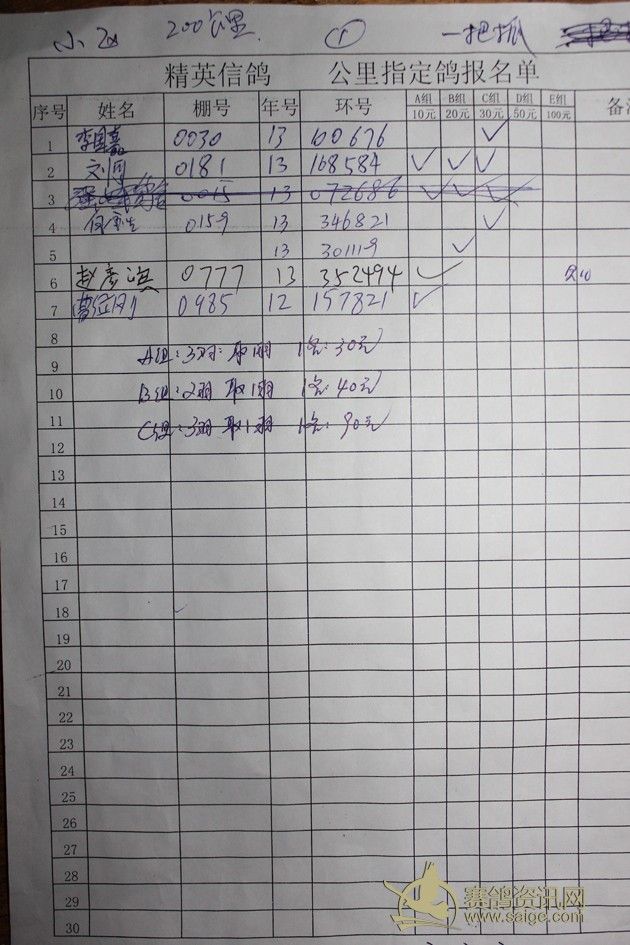 200公里 ① 一把抓
精英信鸽 公里指定鸽报名单
序号 姓名 棚号 年号 环号 A组 10元 B组 20元 C组 30元 D组 50元 E组 100元 备注
1 0030 13 100676 ✓
2 刘国 0181 13 168584 ✓ ✓ ✓
3 0015 13 072686 ✓ ✓ ✓
4 0159 13 346821 ✓
5 13 301119 ✓
6 赵彦淇 0777 13 352494 ✓ 欠10
7 0985 12 157821 ✓
8
9 A组:3羽 取1羽 1名:30元
10 B组:2羽 取1羽 1名:40元
11 C组:3羽 取1羽 1名:90元
12
13
14
15
16
17
18
19
20
21
22
23
24
25
26
27
28
29
30
赛鸽资讯网
www.saige.com